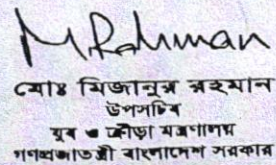 M Rahman
মোঃ মিজানুর রহমান
উপসচিব
যুব ও ক্রীড়া মন্ত্রণালয়
গণপ্রজাতন্ত্রী বাংলাদেশ সরকার